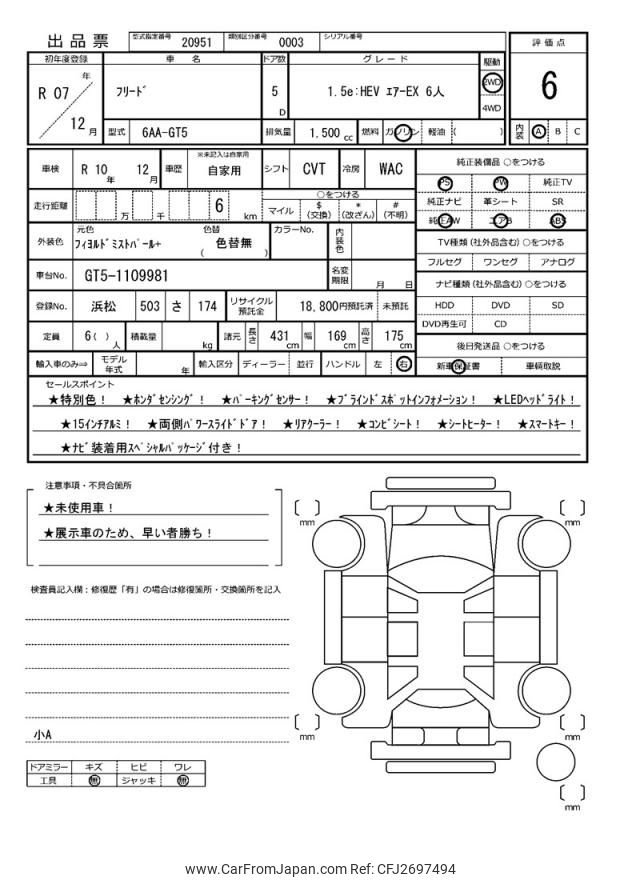 出品票 型式指定番号 20951 類別区分番号 0003 シリアル番号
評価点
初年度登録 車名 ドア数 グレード 駆動
R 07 年 12 月
ﾌﾘｰﾄﾞ 5 D 1.5e:HEV ｴｱｰEX 6人 2WD 4WD
6
型式 6AA-GT5 排気量 1.500 cc 燃料 ガソリン 軽油 ( )
内装 A B C
車検 R 10 年 12 月 車歴 ※未記入は自家用 自家用 シフト CVT 冷房 WAC
純正装備品 ○をつける
PS PW 純正TV
純正ナビ 革シート SR
純正AW エアB ABS
走行距離 万 千 6 km
○をつける
マイル $ (交換) * (改ざん) # (不明)
TV種類(社外品含む) ○をつける
フルセグ ワンセグ アナログ
外装色 元色 ﾌｨﾖﾙﾄﾞﾐｽﾄﾊﾟｰﾙ+ 色替 ( 色替無 ) カラーNo. 内装色
車台No. GT5-1109981 名変期限 月 日
ナビ種類(社外品含む) ○をつける
HDD DVD SD
DVD再生可 CD
登録No. 浜松 503 さ 174 リサイクル預託金 18,800円預託済 未預託
定員 6( )人 積載量 kg 諸元 長さ 431 cm 幅 169 cm 高さ 175 cm
後日発送品 ○をつける
新車保証書 車輌取説
輸入車のみ⇒ モデル年式 年 輸入区分 ディーラー 並行 ハンドル 左 右
セールスポイント
★特別色！ ★ﾎﾝﾀﾞｾﾝｼﾝｸﾞ！ ★ﾊﾟｰｷﾝｸﾞｾﾝｻｰ！ ★ﾌﾞﾗｲﾝﾄﾞｽﾎﾟｯﾄｲﾝﾌｫﾒｰｼｮﾝ！ ★LEDﾍｯﾄﾞﾗｲﾄ！
★15ｲﾝﾁｱﾙﾐ！ ★両側ﾊﾟﾜｰｽﾗｲﾄﾞﾄﾞｱ！ ★ﾘｱｸｰﾗｰ！ ★ｺﾝﾋﾞｼｰﾄ！ ★ｼｰﾄﾋｰﾀｰ！ ★ｽﾏｰﾄｷｰ！
★ﾅﾋﾞ装着用ｽﾍﾟｼｬﾙﾊﾟｯｹｰｼﾞ付き！
注意事項・不具合箇所
★未使用車！
★展示車のため、早い者勝ち！
検査員記入欄：修復歴「有」の場合は修復箇所・交換箇所を記入
小A
ドアミラー キズ ヒビ ワレ
工具 無 ジャッキ 無
mm
mm
mm
mm
mm
www.CarFromJapan.com Ref: CFJ2697494